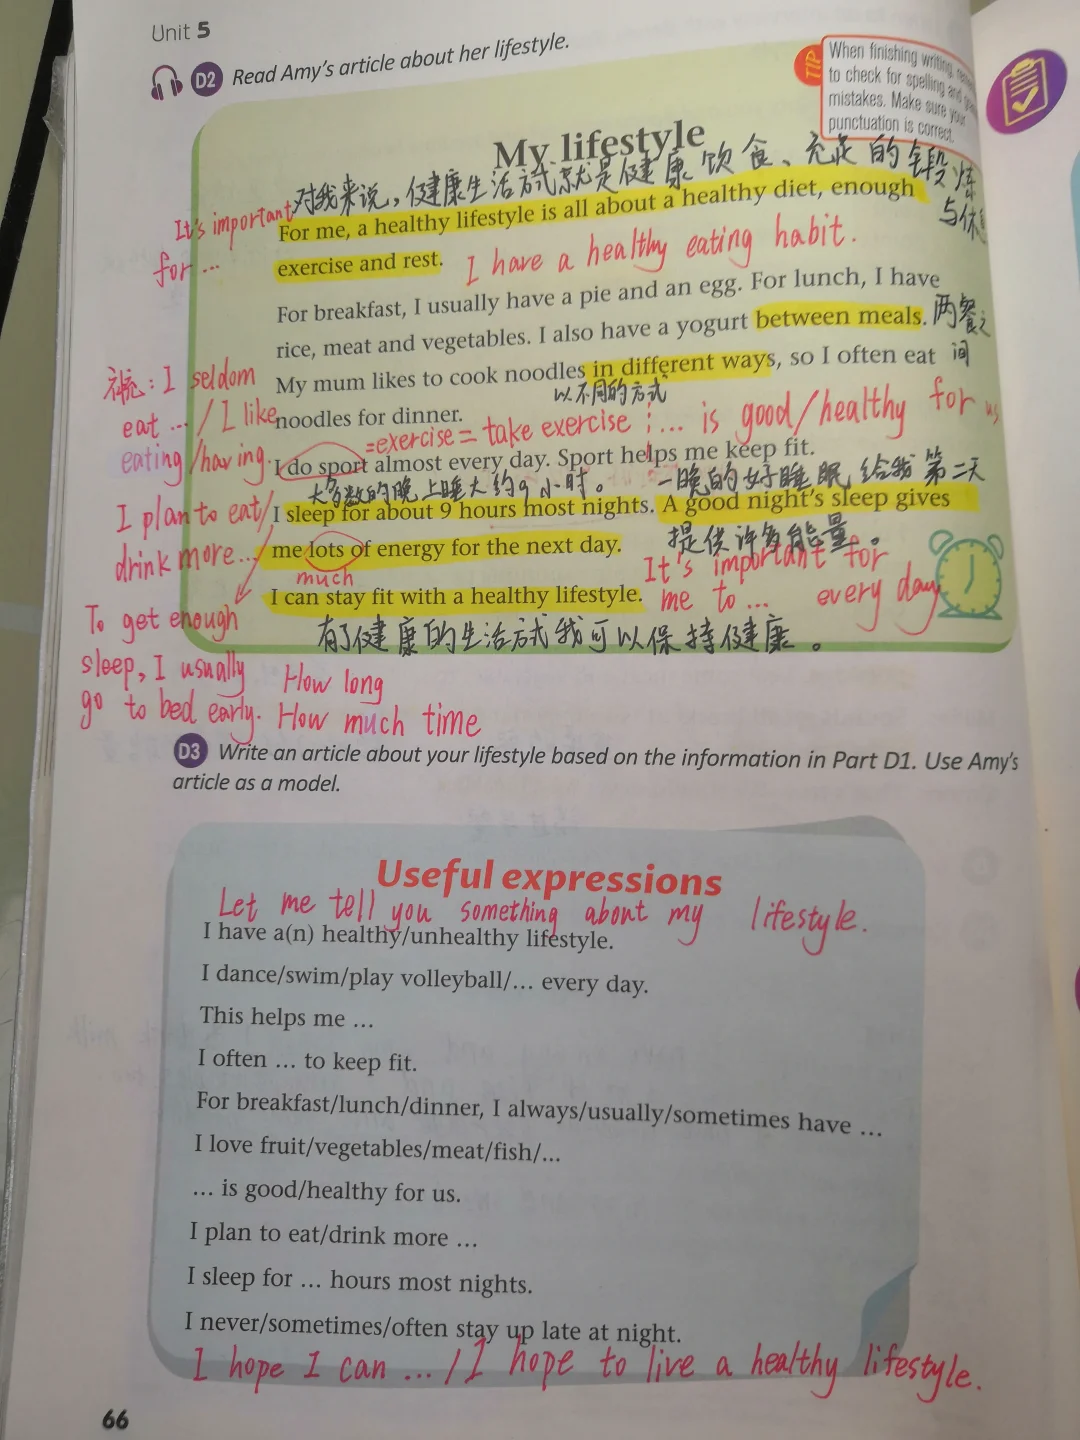 Unit 5
D2 Read Amy's article about her lifestyle.
TIP
When finishing writing,
to check for spelling and
mistakes. Make sure your
punctuation is correct.
My lifestyle
对我来说，健康生活方式就是健康饮食、充足的锻炼
与休息
It's important
for ...
For me, a healthy lifestyle is all about a healthy diet, enough
exercise and rest.
I have a healthy eating habit.
For breakfast, I usually have a pie and an egg. For lunch, I have
rice, meat and vegetables. I also have a yogurt between meals.
两餐之
间
My mum likes to cook noodles in different ways, so I often eat
以不同的方式
noodles for dinner.
补充: I seldom
eat ... / I like
eating/having.
I plan to eat/
drink more...
=exercise = take exercise
... is good/healthy for us
I do sport almost every day. Sport helps me keep fit.
大多数的晚上睡大约9小时。
一晚的好睡眠给我第二天
I sleep for about 9 hours most nights. A good night's sleep gives
提供许多能量。
me lots of energy for the next day.
much
It's important for
me to ... every day
I can stay fit with a healthy lifestyle.
有了健康的生活方式我可以保持健康。
To get enough
sleep, I usually
go to bed early.
How long
How much time
D3 Write an article about your lifestyle based on the information in Part D1. Use Amy's
article as a model.
Useful expressions
Let me tell you something about my lifestyle.
I have a(n) healthy/unhealthy lifestyle.
I dance/swim/play volleyball/... every day.
This helps me ...
I often ... to keep fit.
For breakfast/lunch/dinner, I always/usually/sometimes have ...
I love fruit/vegetables/meat/fish/...
... is good/healthy for us.
I plan to eat/drink more ...
I sleep for ... hours most nights.
I never/sometimes/often stay up late at night.
I hope I can ... / I hope to live a healthy lifestyle.
66